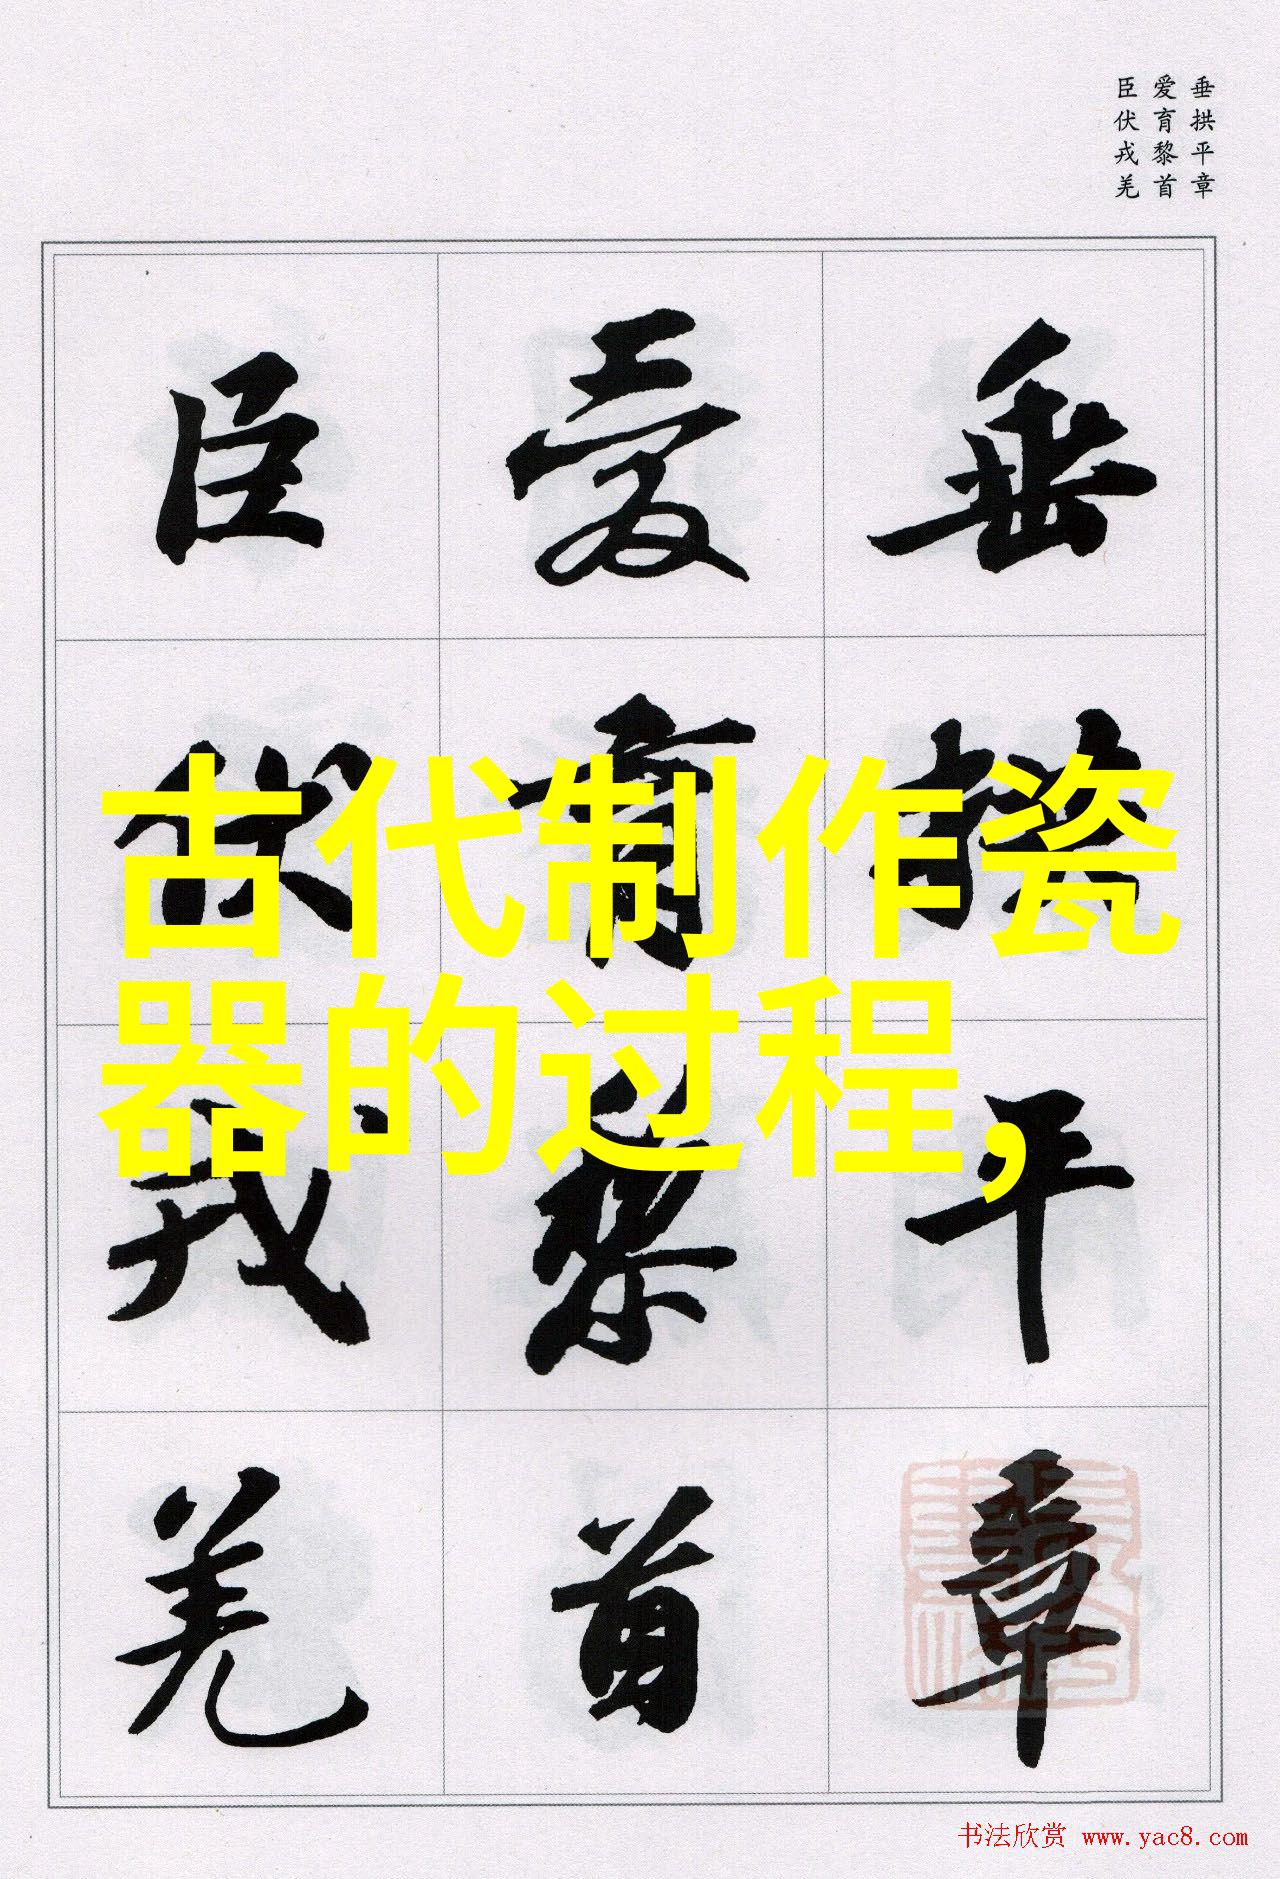 垂拱平章
爱育黎首
臣伏戎羌
垂拱平章
爱育黎首
臣伏戎羌
古代制作瓷
器的过程,
书法欣赏 www.yac8.com